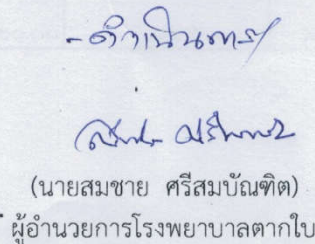 - ดำเนินการ
(นายสมชาย ศรีสมบัณฑิต)
ผู้อำนวยการโรงพยาบาลตากใบ